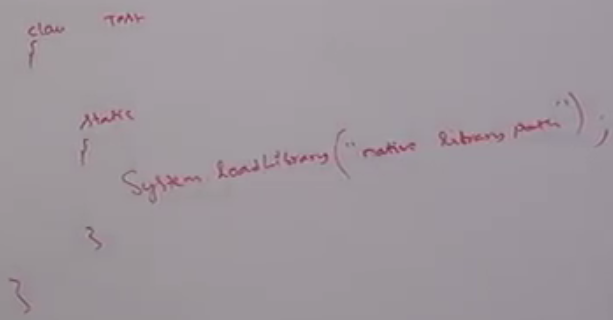 class Test
{
static
{
System.loadLibrary("native library path");
}
}